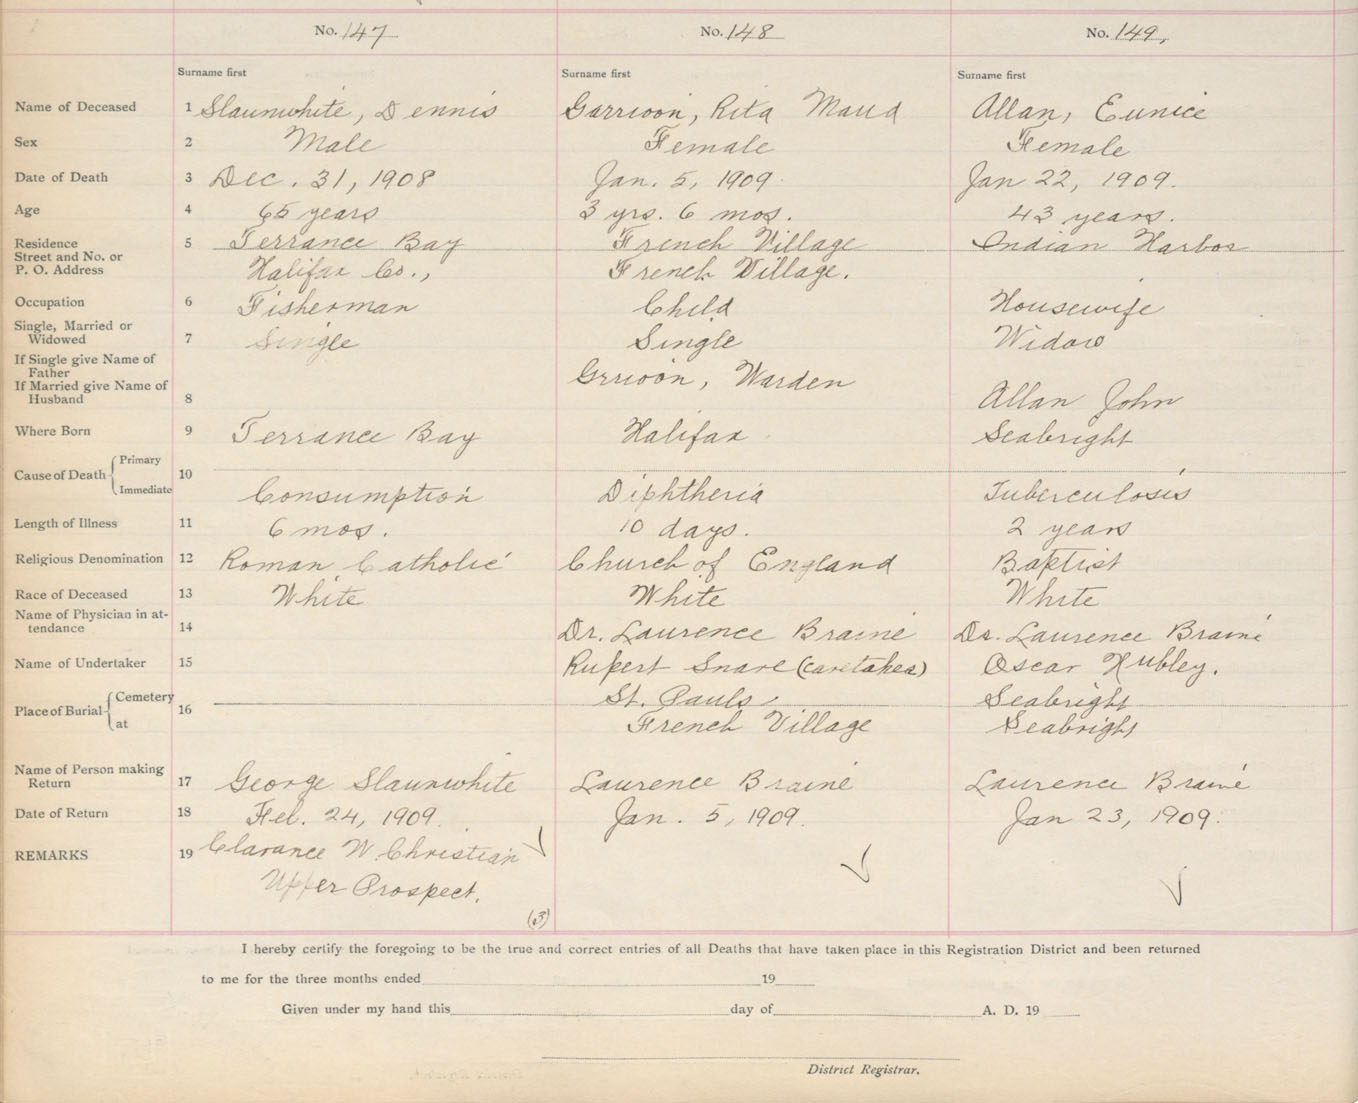 No. 147 No. 148 No. 149,
Surname first Surname first Surname first
Name of Deceased 1 Slaunwhite, Dennis Garrison, Rita Maud Allan, Eunice
Sex 2 Male Female Female
Date of Death 3 Dec. 31, 1908 Jan. 5, 1909 Jan 22, 1909.
Age 4 65 years 3 yrs. 6 mos. 43 years.
Residence 5 Terrance Bay French Village Indian Harbor
Street and No. or
P. O. Address Halifax Co., French Village.
Occupation 6 Fisherman Child Housewife
Single, Married or
Widowed 7 Single Single Widow
If Single give Name of
Father Warden
If Married give Name of
Husband 8 Allan John
Where Born 9 Terrance Bay Halifax Seabright
Cause of Death Primary 10
Immediate Consumption Diphtheria Tuberculosis
Length of Illness 11 6 mos. 10 days. 2 years
Religious Denomination 12 Roman Catholic Church of England Baptist
Race of Deceased 13 White White White
Name of Physician in at-
tendance 14 Dr. Laurence Braine Dr. Laurence Braine
Name of Undertaker 15 Rupert Snare (caretaker) Oscar Hubley.
Place of Burial Cemetery 16 St. Pauls Seabright
at French Village Seabright
Name of Person making
Return 17 George Slaunwhite Laurence Braine Laurence Braine
Date of Return 18 Feb. 24, 1909. Jan. 5, 1909. Jan 23, 1909.
REMARKS 19 Clarance W. Christian
Upper Prospect.
(3)
I hereby certify the foregoing to be the true and correct entries of all Deaths that have taken place in this Registration District and been returned
to me for the three months ended 19
Given under my hand this day of A. D. 19
District Registrar.